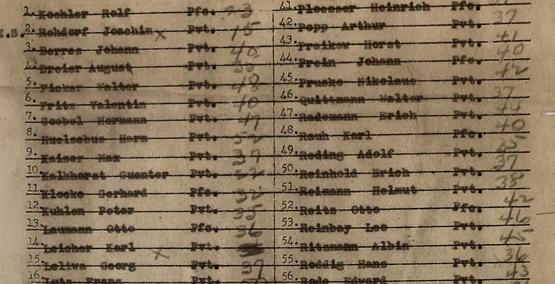 1. Koehler Rolf Pfc. 23
E.S. 2. Rehdorf Joachim x Pvt. 15
3. Borres Johann Pvt. 40
4. Dreier August Pvt.
5. Picker Walter Pvt. 48
6. Fritz Valentin Pvt. 40
7. Goebel Hermann Pvt. 47
8. Huelsebus Harm Pvt. 52
9. Kaiser Max Pvt. 39
10. Kalkhorst Guenter Pvt.
11. Kloske Gerhard Pfc.
12. Kuhlen Peter Pvt. 35
13. Laumann Otto Pfc. 36
14. Leicher Karl x Pvt.
15. Leliwa Georg Pvt. 37
16. Lutz Franz Pvt.
41. Ploesser Heinrich Pfc. 37
42. Popp Arthur Pvt. 37
43. Preikow Horst Pvt. 41
44. Prein Johann Pfc. 40
45. Pruske Nikolaus Pvt. 42
46. Quittmann Walter Pvt. 37
47. Rademann Erich Pvt. 44
48. Rauh Karl Pfc. 40
49. Reding Adolf Pvt.
50. Reinhold Erich Pvt. 37
51. Reimann Helmut Pvt. 38
52. Reitz Otto Pfc. 42
53. Reinboy Leo Pvt. 46
54. Ritzmann Albin Pvt. 45
55. Roddig Hans Pvt. 36
56. Rode Edward Pvt. 43